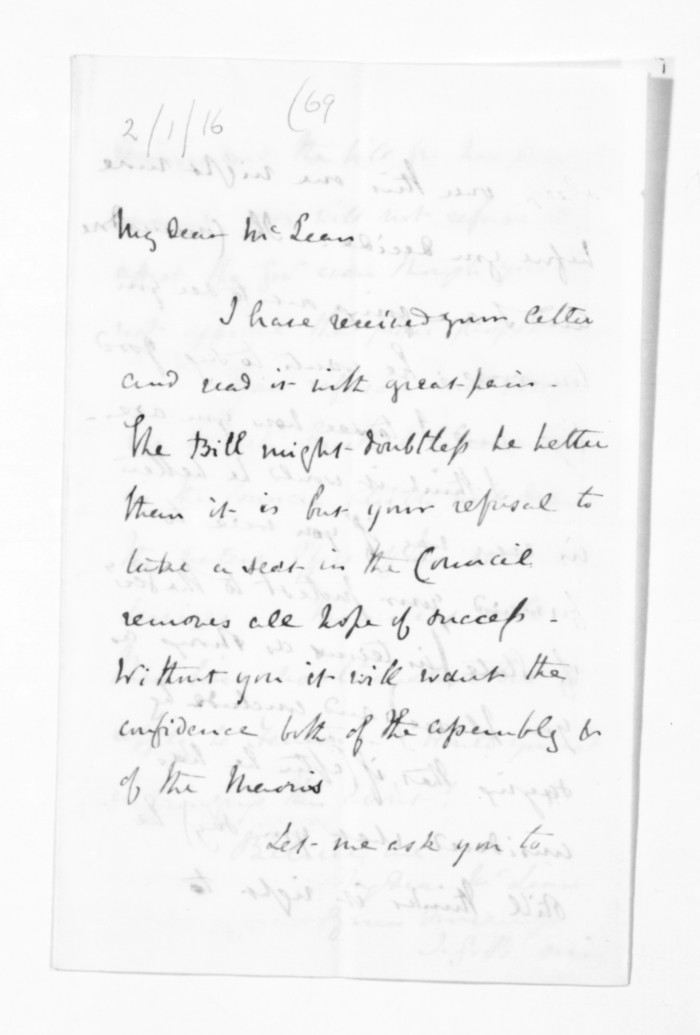 2/1/16 (69
My dear McLean
I have received your letter
and read it with great pain -
The Bill might doubtless be better
than it is but your refusal to
take a seat in the Council
removes all hope of success -
Without you it will want the
confidence both of the Assembly &
of the Maoris
Let me ask you to